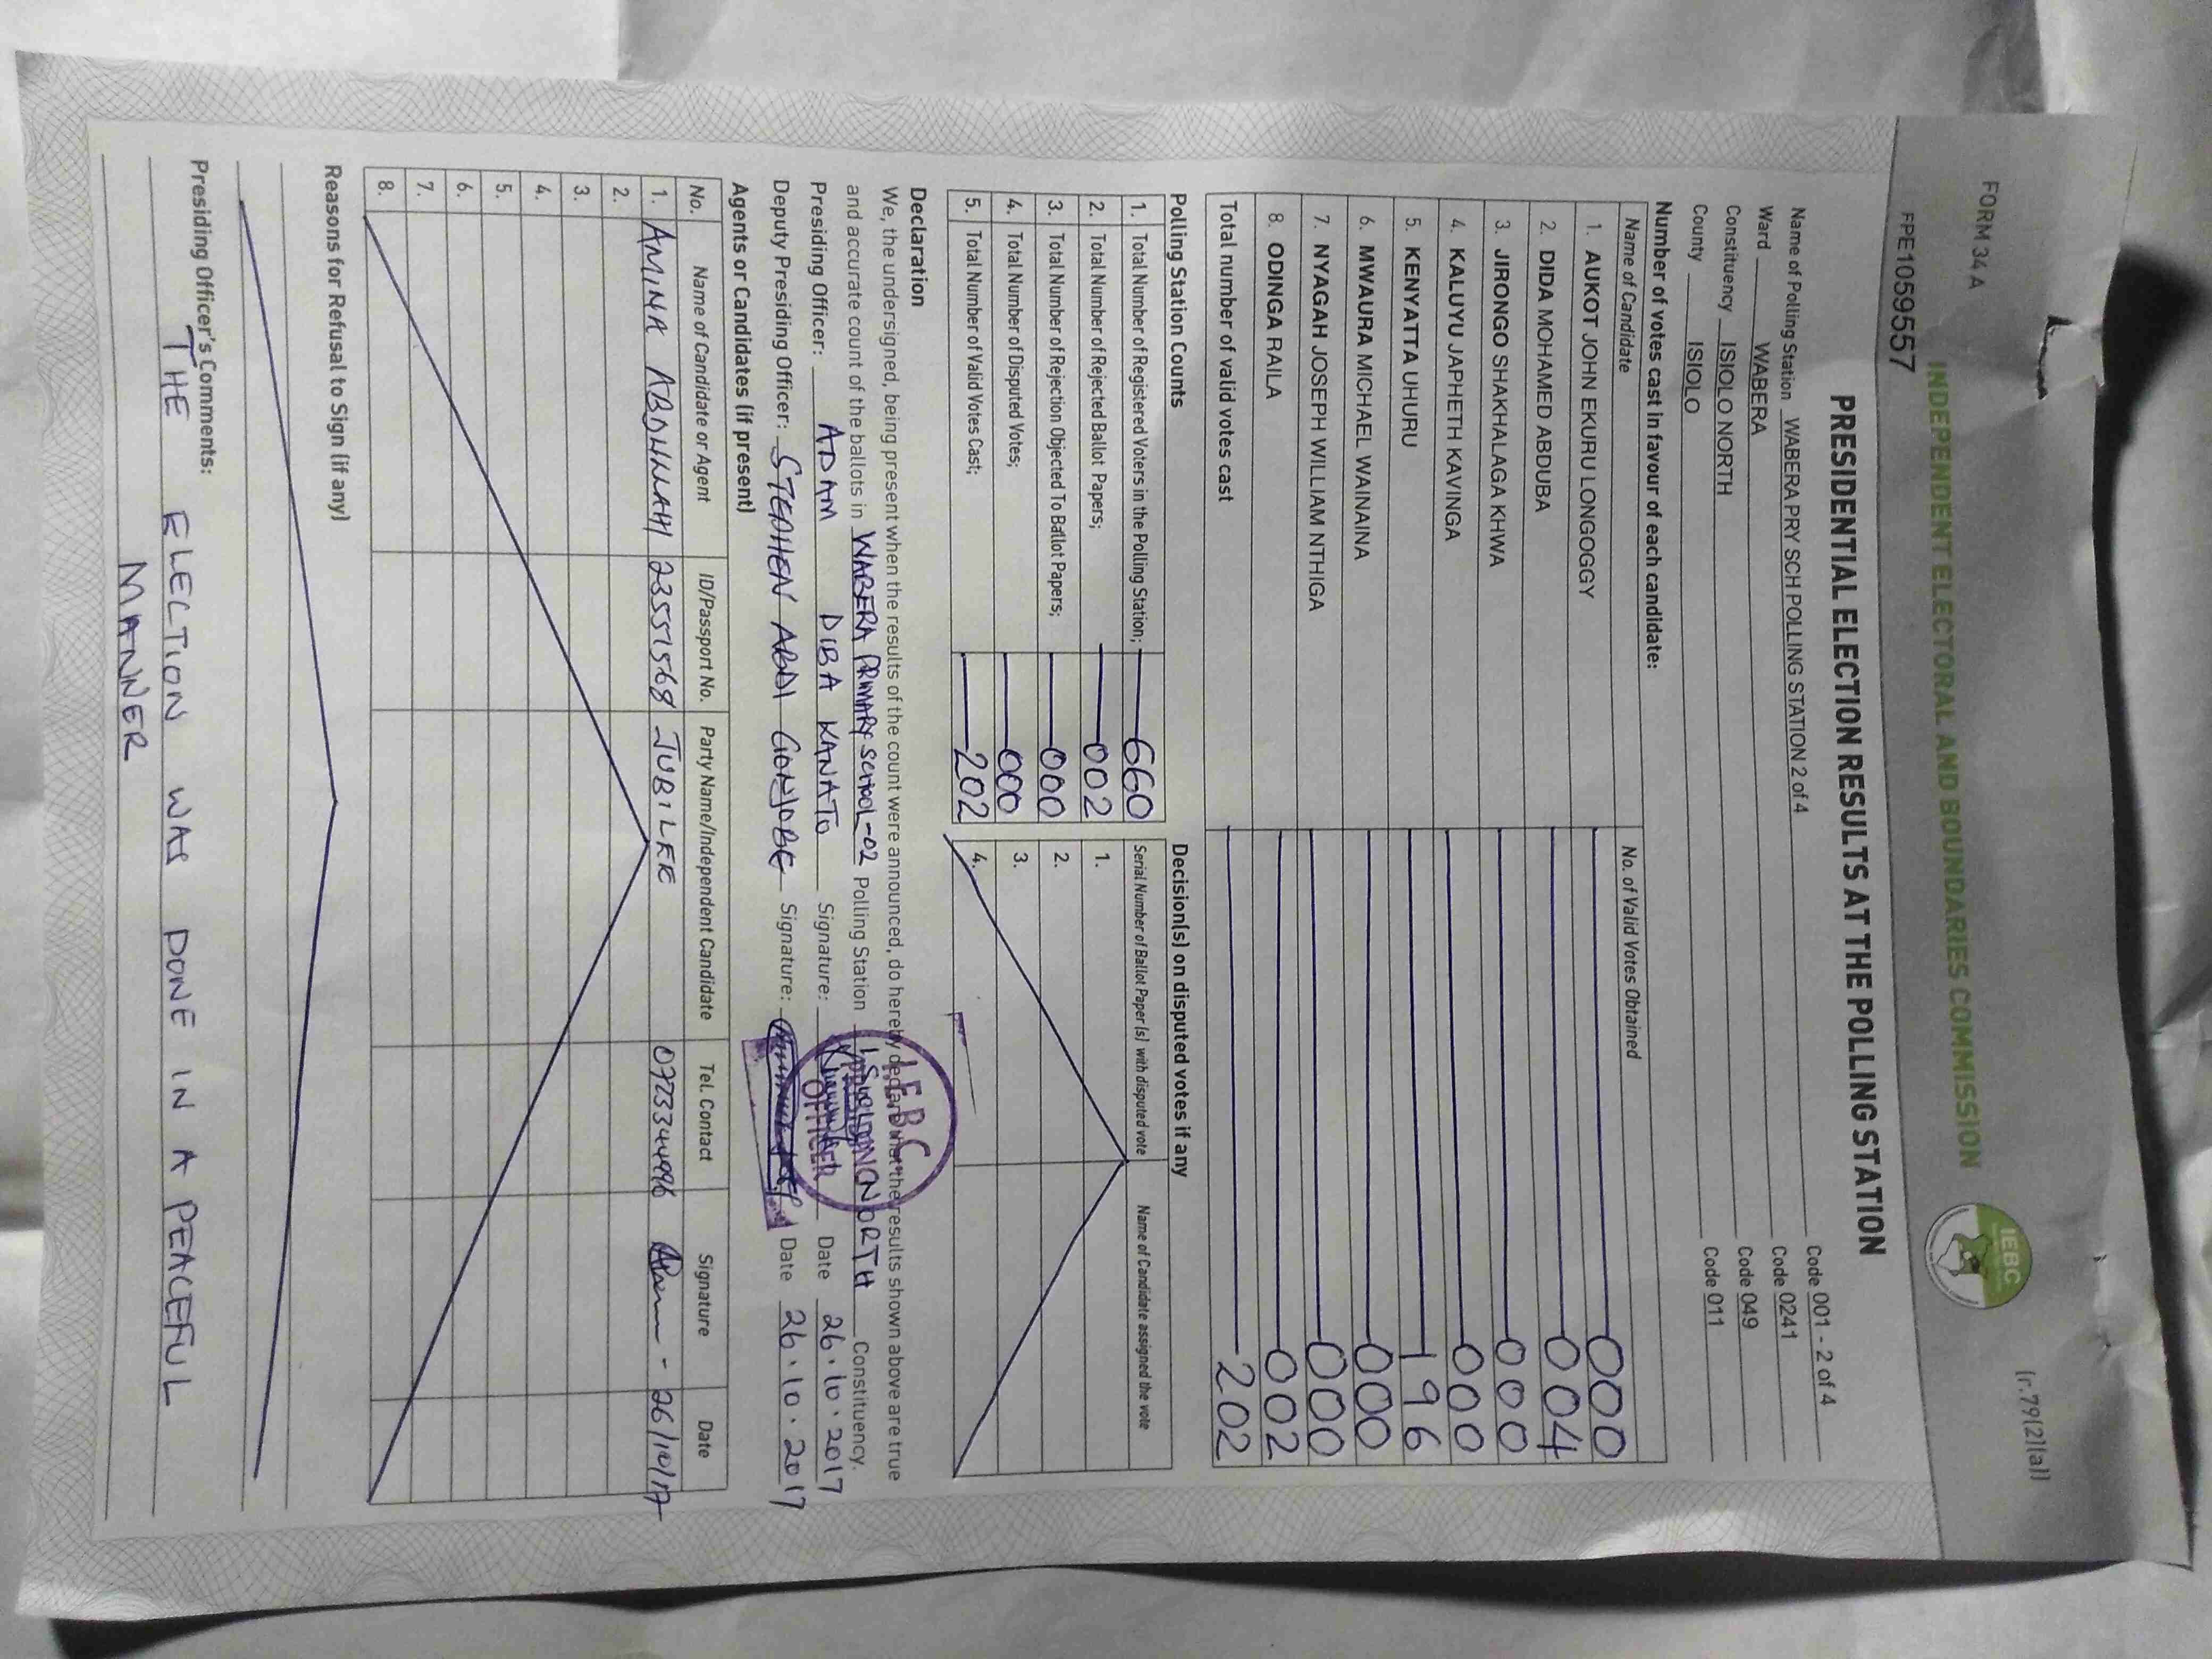 FORM 34 A
(r.79(2)(a))
INDEPENDENT ELECTORAL AND BOUNDARIES COMMISSION
IEBC
FPE1059557
PRESIDENTIAL ELECTION RESULTS AT THE POLLING STATION
Name of Polling Station WABERA PRY SCH POLLING STATION 2 of 4 Code 001 - 2 of 4
Ward WABERA Code 0241
Constituency ISIOLO NORTH Code 049
County ISIOLO Code 011
Number of votes cast in favour of each candidate:
Name of Candidate No. of Valid Votes Obtained
1. AUKOT JOHN EKURU LONGOGGY 000
2. DIDA MOHAMED ABDUBA 004
3. JIRONGO SHAKHALAGA KHWA 000
4. KALUYU JAPHETH KAVINGA 000
5. KENYATTA UHURU 196
6. MWAURA MICHAEL WAINAINA 000
7. NYAGAH JOSEPH WILLIAM NTHIGA 000
8. ODINGA RAILA 002
Total number of valid votes cast 202
Polling Station Counts
1. Total Number of Registered Voters in the Polling Station; 660
2. Total Number of Rejected Ballot Papers; 002
3. Total Number of Rejection Objected To Ballot Papers; 000
4. Total Number of Disputed Votes; 000
5. Total Number of Valid Votes Cast; 202
Decision(s) on disputed votes if any
Serial Number of Ballot Paper (s) with disputed vote Name of Candidate assigned the vote
1.
2.
3.
4.
Declaration
We, the undersigned, being present when the results of the count were announced, do hereby declare that the results shown above are true
and accurate count of the ballots in WABERA PRIMARY SCHOOL-02 Polling Station ISIOLO NORTH Constituency.
Presiding Officer: ADAM DIBA KANATO Signature: Date 26.10.2017
Deputy Presiding Officer: STEPHEN ABDI Signature: Date 26.10.2017
I.E.B.C.
OFFICER
Agents or Candidates (if present)
No. Name of Candidate or Agent ID/Passport No. Party Name/Independent Candidate Tel. Contact Signature Date
1. AMINA ABDULLAHI 23551568 JUBILEE 0723344996 26/10/17
2.
3.
4.
5.
6.
7.
8.
Reasons for Refusal to Sign (if any)
Presiding Officer's Comments:
THE ELECTION WAS DONE IN A PEACEFUL
MANNER